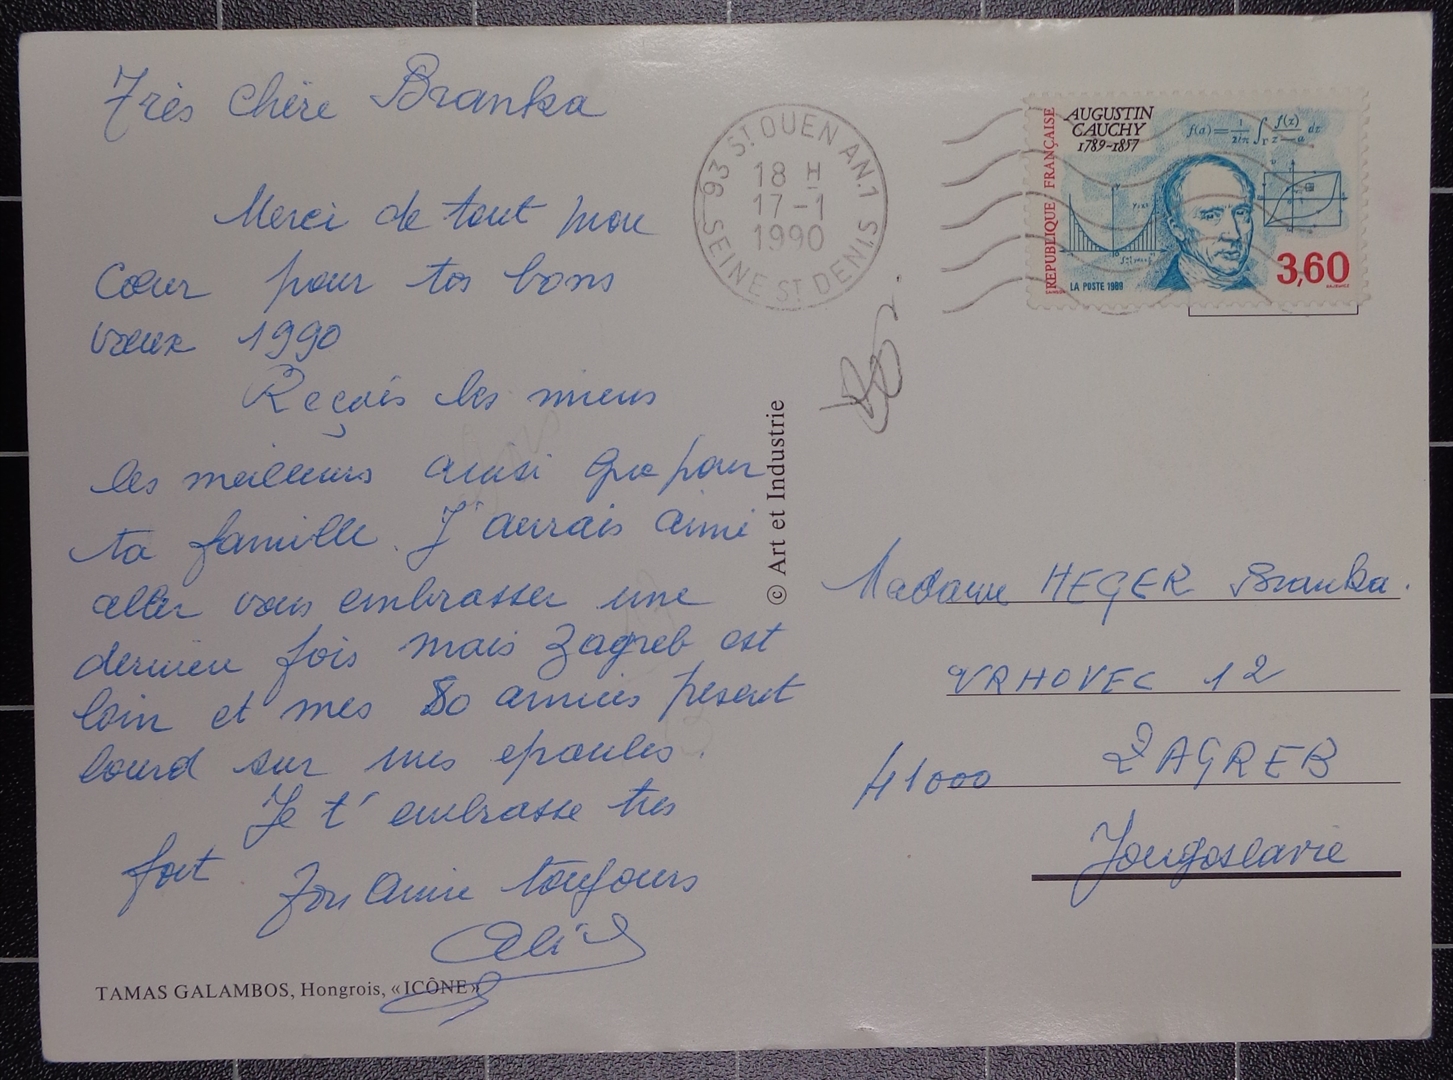 Très chère Branka
Merci de tout mon
cœur pour tes bons
vœux 1990
Reçois les miens
les meilleurs ainsi que pour
ta famille. J'aurais aimé
aller vous embrasser une
dernière fois mais Zagreb est
loin et mes 80 années pesent
lourd sur mes epaules.
Je t'embrasse très
fort Ton amie toujours
TAMAS GALAMBOS, Hongrois, «ICÔNE»
© Art et Industrie
93 ST OUEN AN.1
18 H
17-1
1990
SEINE ST DENIS
REPUBLIQUE FRANÇAISE
AUGUSTIN
CAUCHY
1789-1857
f(a)=1/2iπ ∫Γ f(z)/z-a dz
LA POSTE 1989
3,60
Madame HEGER Branka.
VRHOVEC 12
41000 ZAGREB
Yougoslavie